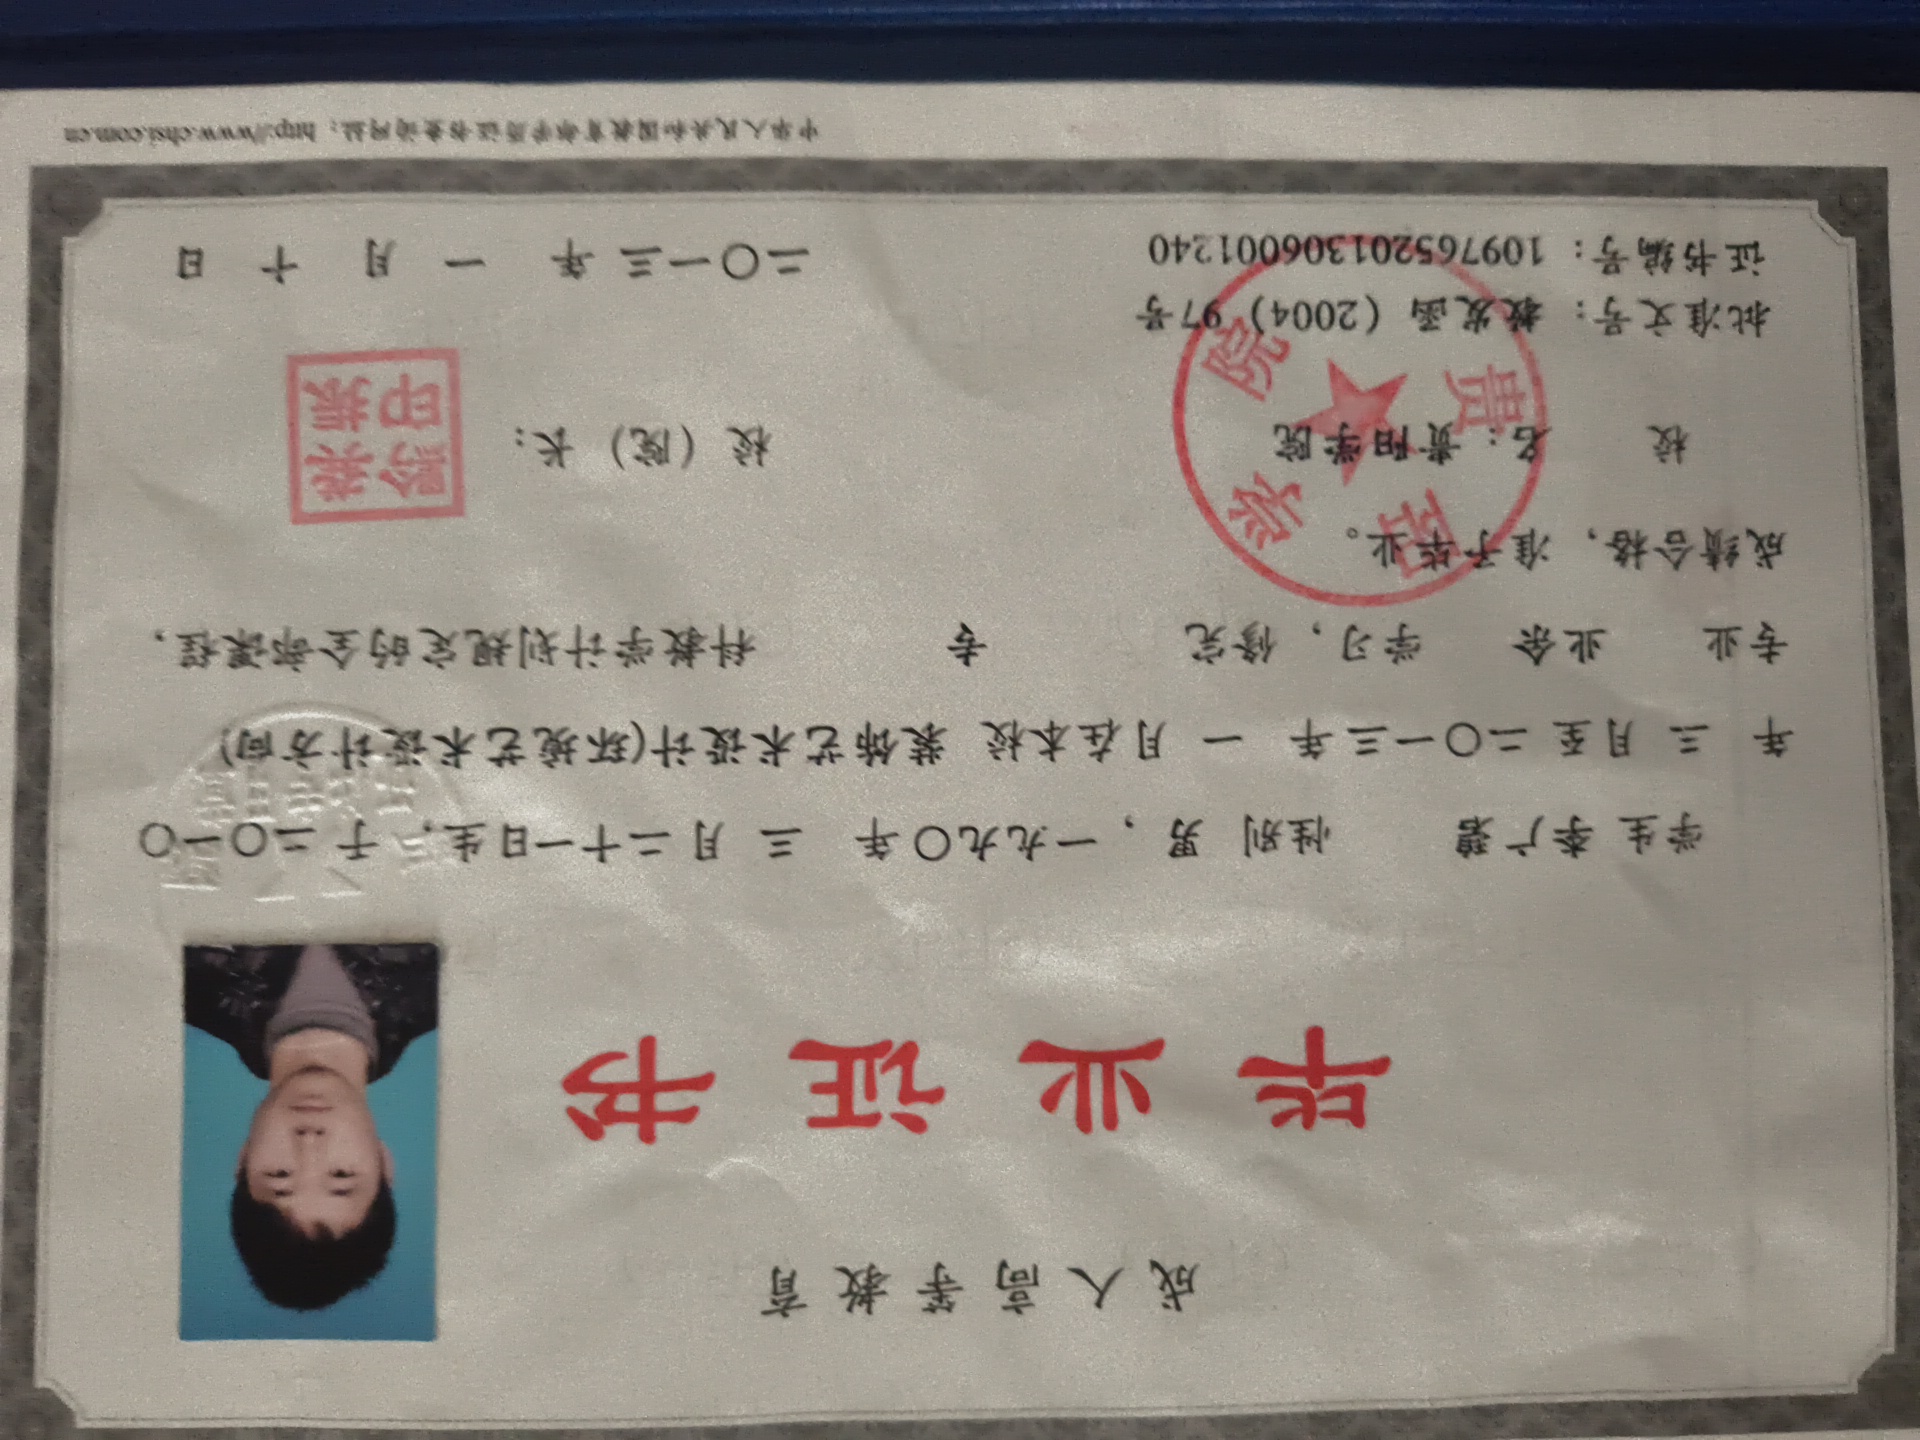 成人高等教育
毕业证书
学生 李广碧 性别 男，一九九〇年 三 月二十一日生，于 二〇一〇
年 三 月至 二〇一三年 一 月在本校 装饰艺术设计(环境艺术设计方向)
专业 业余 学习，修完 专 科教学计划规定的全部课程，
成绩合格，准予毕业。
校 名：贵阳学院 校（院）长：
贵阳学院
批准文号：教发函（2004）97号
证书编号：109765201306001240 二〇一三 年 一 月 十 日
中华人民共和国教育部学历证书查询网址：http://www.chsi.com.cn